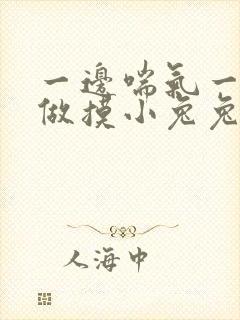 一邊喘氣一
做摸小兔兔
人海中